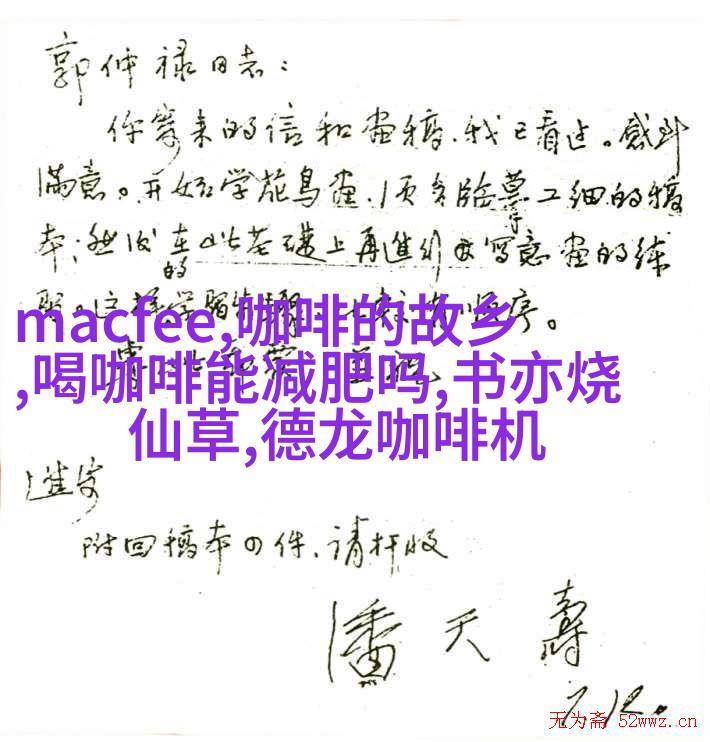 郭仲禄同志：
你寄来的信和画稿，我已看过。感到
满意。开始学花鸟画，须多临摹工细的稿
本；然后在此基础上再进行写意画的练
习。这样的学习步骤，比较有顺序。
macfee,咖啡的故乡
,喝咖啡能减肥吗,书亦烧
仙草,德龙咖啡机
进安
附回稿本四件，请检收
潘天寿
7.12.
无为斋 52wwz.cn